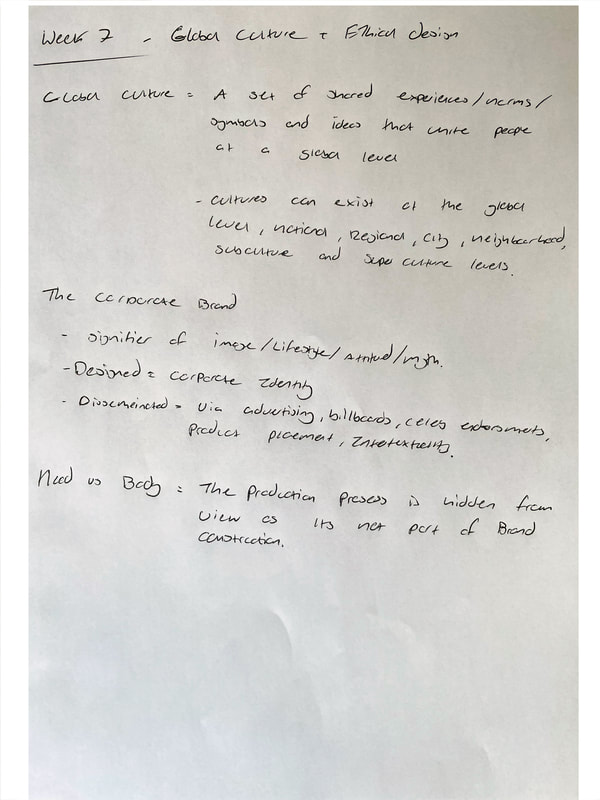 Week 7 - Global Culture + Ethical design
Global Culture = A set of shared experiences/norms/
symbols and ideas that unite people
at a global level
- cultures can exist at the global
level, national, Regional, city, neighbourhood,
subculture and super culture levels.
The Corporate Brand
- signifier of image/Lifestyle/Attitud/myth.
- Designed = corporate Identity
- Dissemeinated = via advertising, billboards, celeb endorsments,
product placement, Intertextuality.
Head vs Body = The production process is hidden from
view as its not part of Brand
construction.